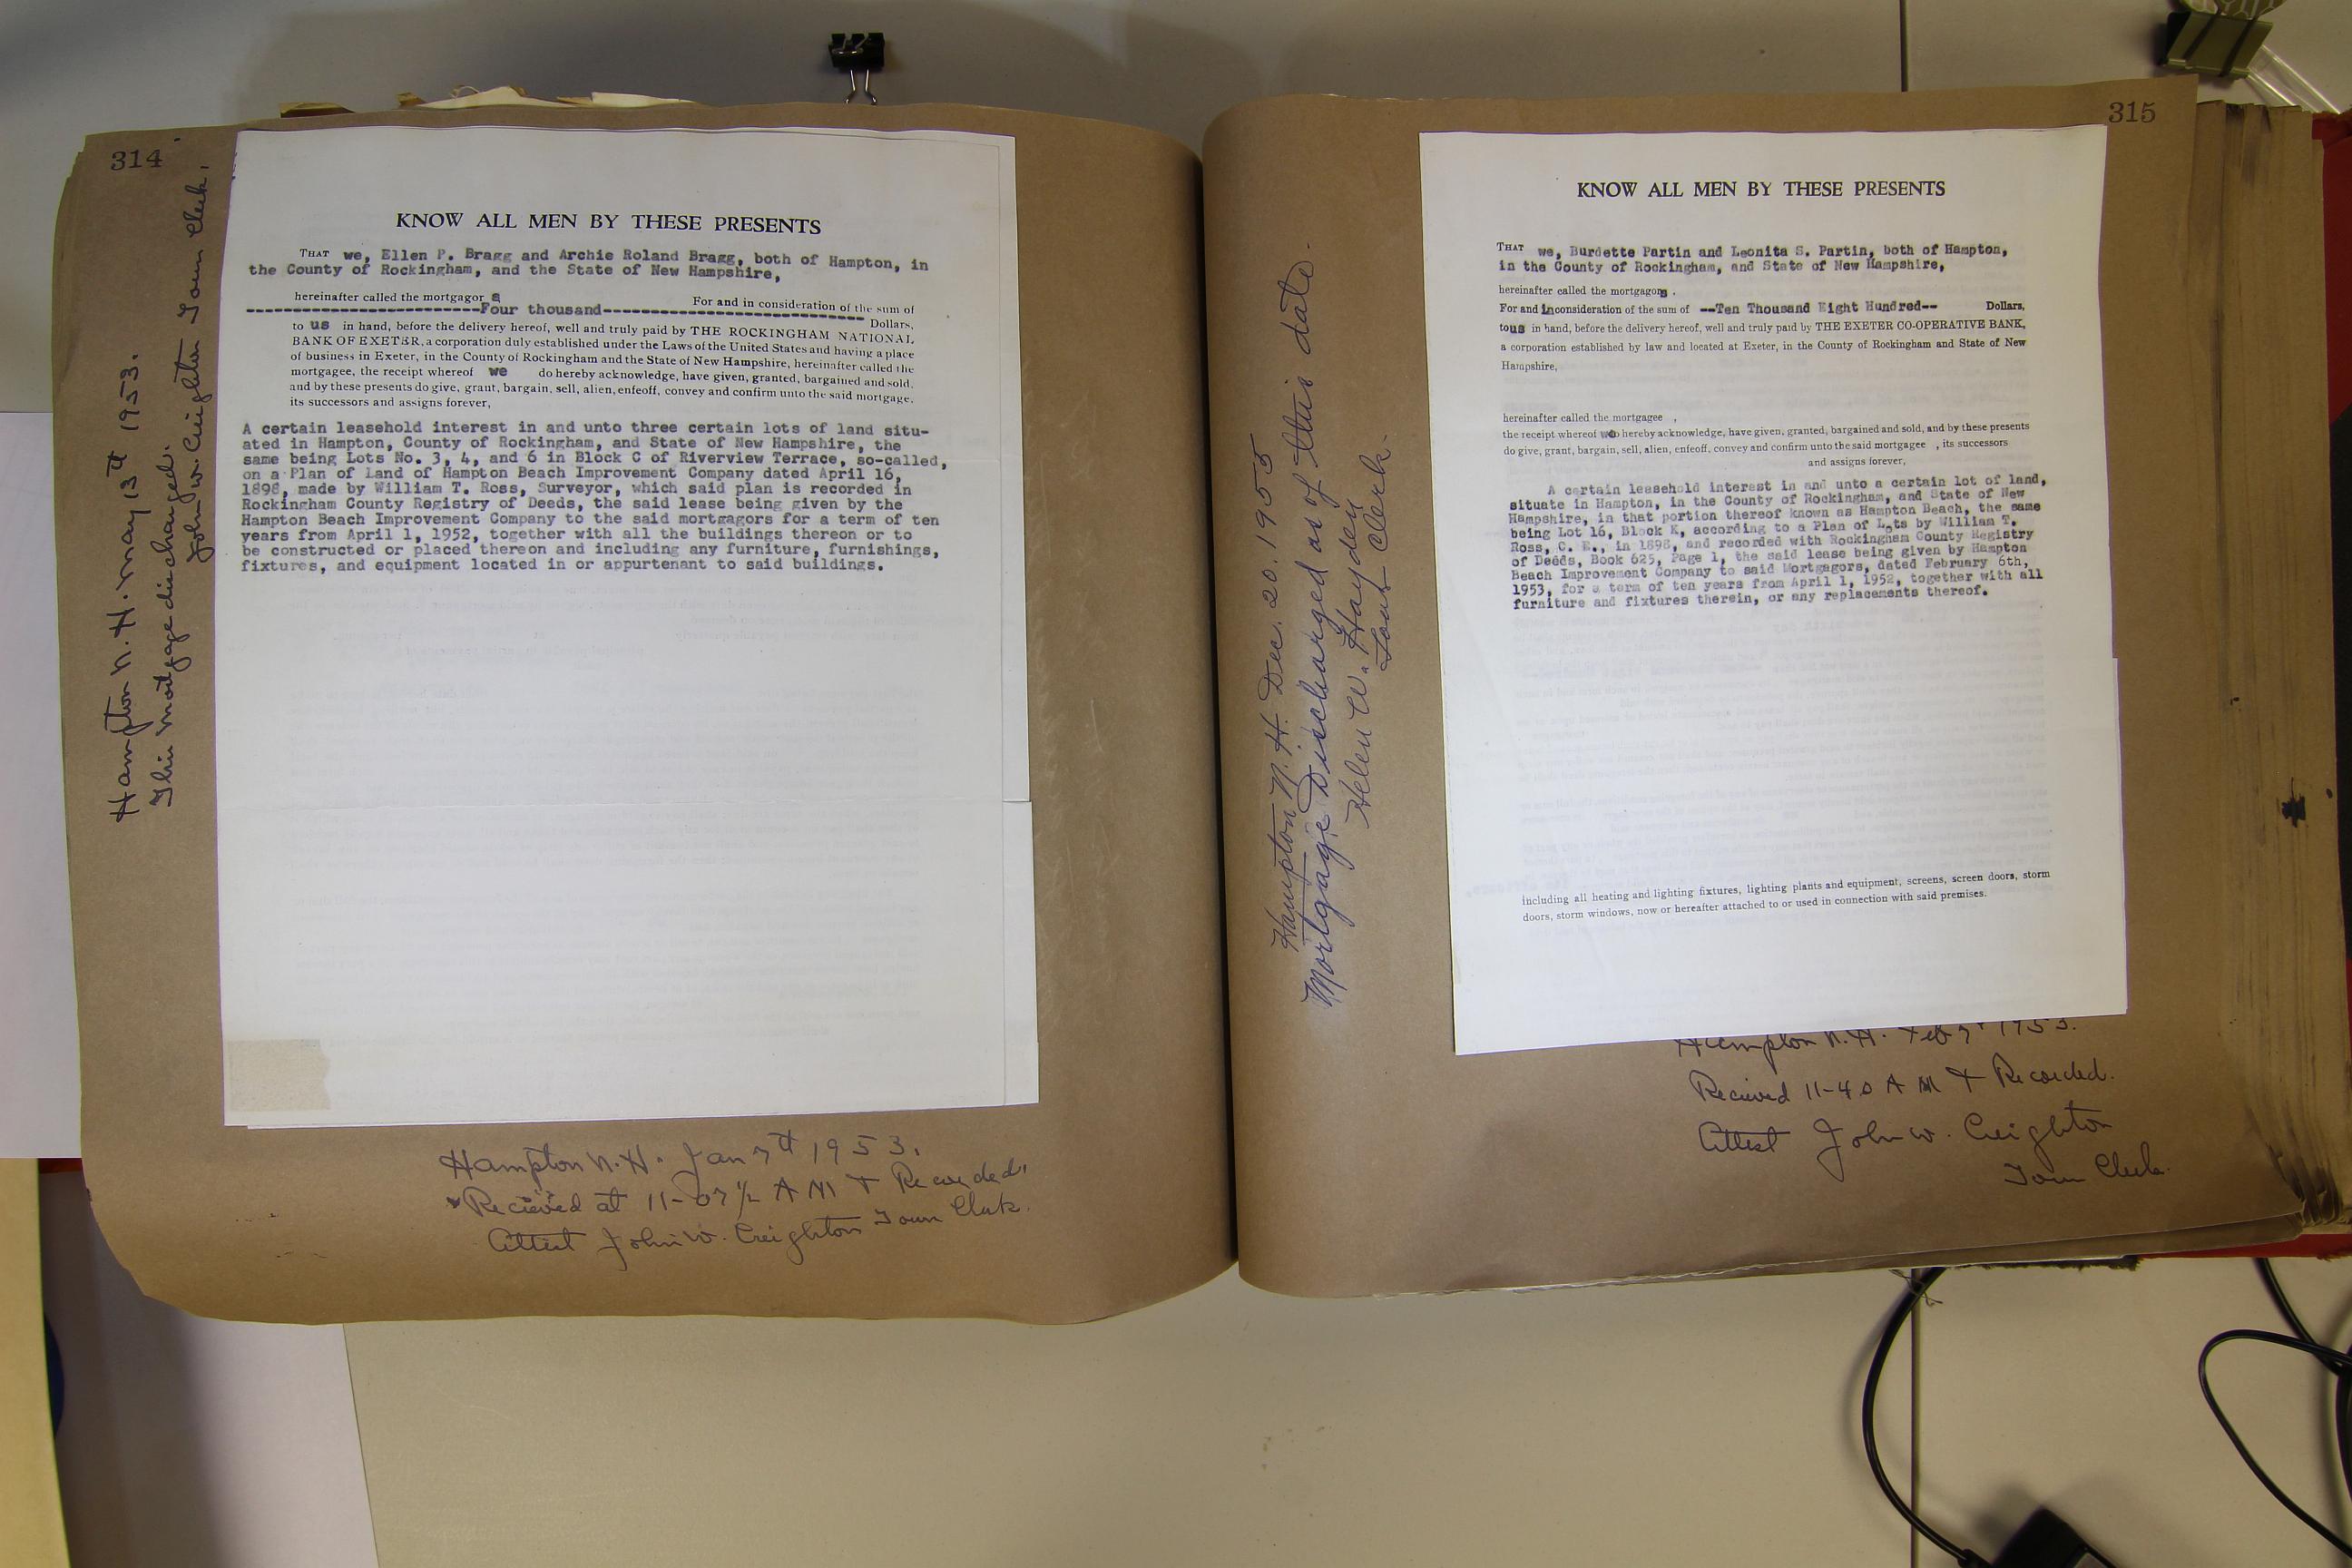 314
Hampton N. H. May 13th 1953.
This mortgage discharged.
John W. Creighton Town Clerk.
KNOW ALL MEN BY THESE PRESENTS
THAT we, Ellen P. Bragg and Archie Roland Bragg, both of Hampton, in
the County of Rockingham, and the State of New Hampshire,
hereinafter called the mortgagor s For and in consideration of the sum of
--------------------------Four thousand----------------------------- Dollars,
to us in hand, before the delivery hereof, well and truly paid by THE ROCKINGHAM NATIONAL
BANK OF EXETER, a corporation duly established under the Laws of the United States and having a place
of business in Exeter, in the County of Rockingham and the State of New Hampshire, hereinafter called the
mortgagee, the receipt whereof we do hereby acknowledge, have given, granted, bargained and sold,
and by these presents do give, grant, bargain, sell, alien, enfeoff, convey and confirm unto the said mortgage,
its successors and assigns forever,
A certain leasehold interest in and unto three certain lots of land situ-
ated in Hampton, County of Rockingham, and State of New Hampshire, the
same being Lots No. 3, 4, and 6 in Block C of Riverview Terrace, so-called,
on a Plan of Land of Hampton Beach Improvement Company dated April 16,
1898, made by William T. Ross, Surveyor, which said plan is recorded in
Rockingham County Registry of Deeds, the said lease being given by the
Hampton Beach Improvement Company to the said mortgagors for a term of ten
years from April 1, 1952, together with all the buildings thereon or to
be constructed or placed thereon and including any furniture, furnishings,
fixtures, and equipment located in or appurtenant to said buildings.
Hampton N. H. Jan 7th 1953.
Recieved at 11-07 1/2 A M & Recorded.
Attest John W. Creighton Town Clerk.
315
Hampton N. H. Dec. 20. 1955
Mortgage Discharged as of this date.
Helen W. Hayden
Town Clerk.
KNOW ALL MEN BY THESE PRESENTS
THAT we, Burdette Partin and Leonita S. Partin, both of Hampton,
in the County of Rockingham, and State of New Hampshire,
hereinafter called the mortgagors .
For and in consideration of the sum of --Ten Thousand Eight Hundred-- Dollars,
to us in hand, before the delivery hereof, well and truly paid by THE EXETER CO-OPERATIVE BANK,
a corporation established by law and located at Exeter, in the County of Rockingham and State of New
Hampshire,
hereinafter called the mortgagee ,
the receipt whereof we do hereby acknowledge, have given, granted, bargained and sold, and by these presents
do give, grant, bargain, sell, alien, enfeoff, convey and confirm unto the said mortgagee , its successors
and assigns forever,
A certain leasehold interest in and unto a certain lot of land,
situate in Hampton, in the County of Rockingham, and State of New
Hampshire, in that portion thereof known as Hampton Beach, the same
being Lot 16, Block K, according to a Plan of Lots by William T.
Ross, C. E., in 1898, and recorded with Rockingham County Registry
of Deeds, Book 625, Page 1, the said lease being given by Hampton
Beach Improvement Company to said Mortgagors, dated February 6th,
1953, for a term of ten years from April 1, 1952, together with all
furniture and fixtures therein, or any replacements thereof.
including all heating and lighting fixtures, lighting plants and equipment, screens, screen doors, storm
doors, storm windows, now or hereafter attached to or used in connection with said premises.
Hampton N. H. Feb 7th 1953.
Recieved 11-40 A M & Recorded.
Attest John W. Creighton
Town Clerk.